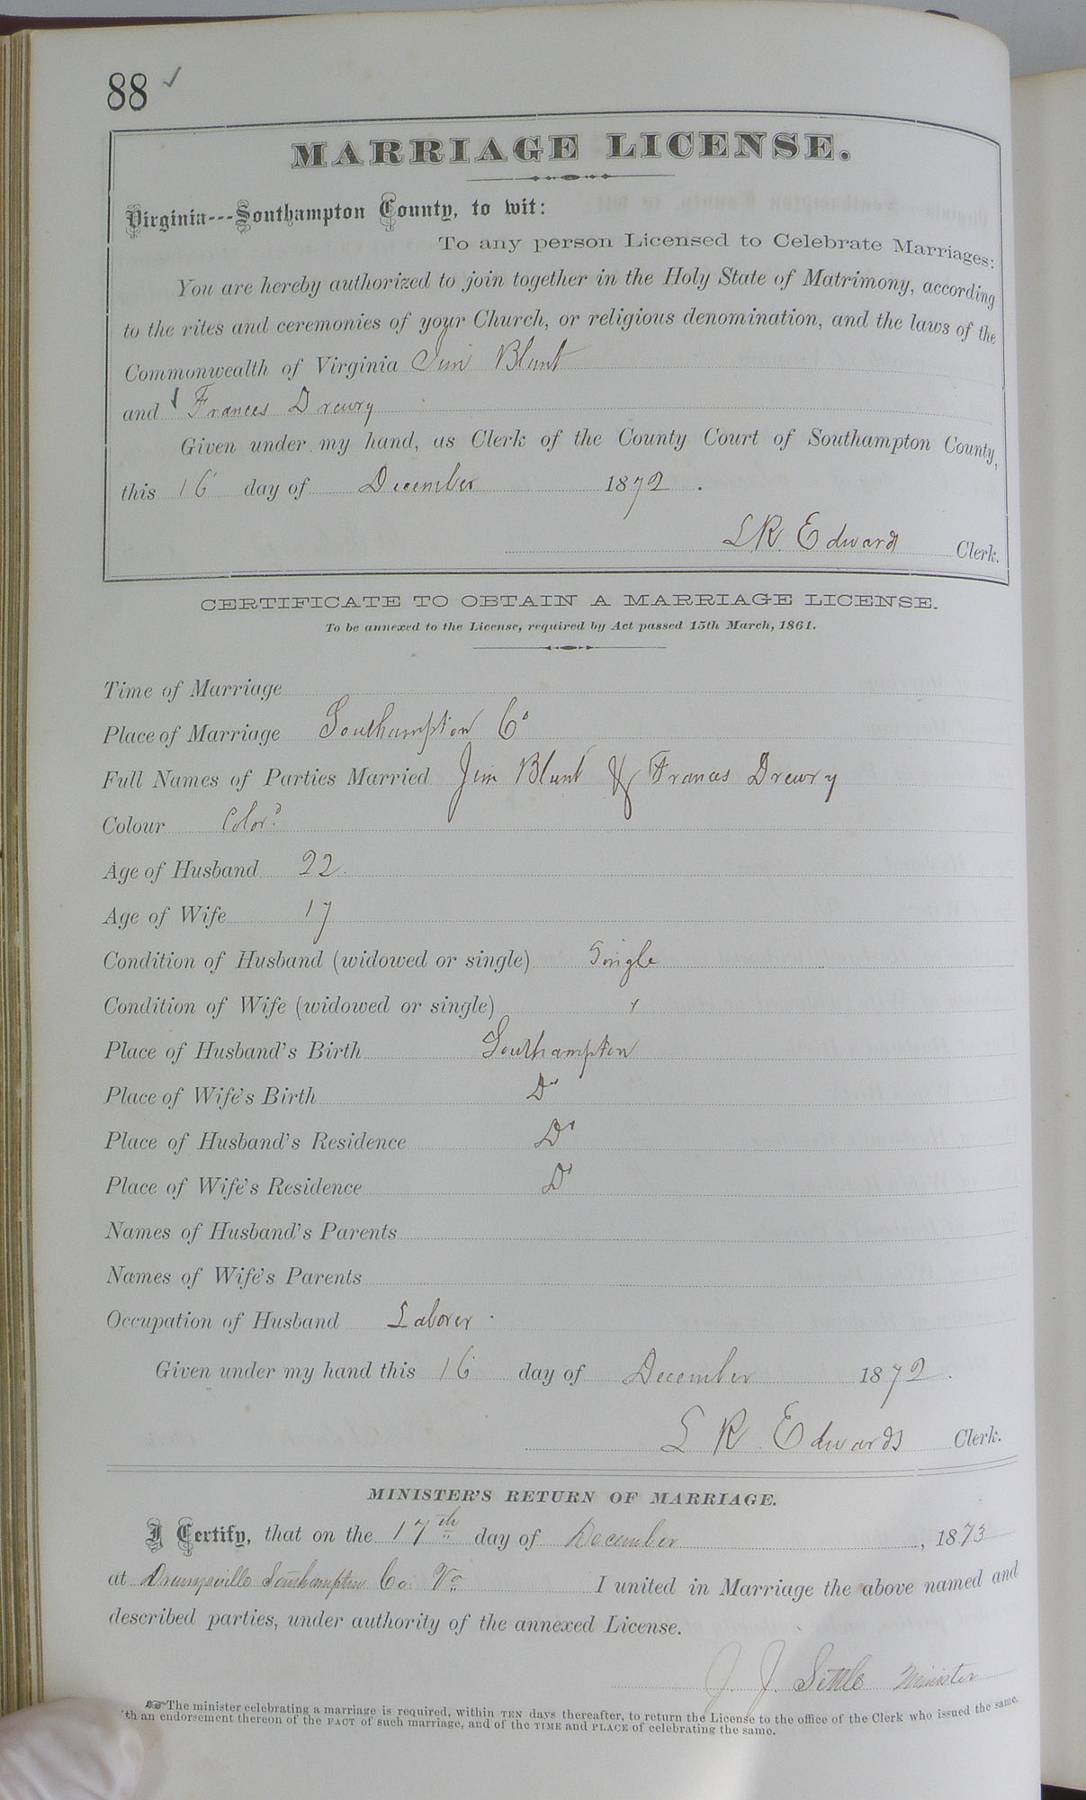 88 ✓
MARRIAGE LICENSE.
Virginia---Southampton County, to wit:
To any person Licensed to Celebrate Marriages:
You are hereby authorized to join together in the Holy State of Matrimony, according
to the rites and ceremonies of your Church, or religious denomination, and the laws of the
Commonwealth of Virginia Jim Blunt
and Frances Drewry
Given under my hand, as Clerk of the County Court of Southampton County,
this 16 day of December 1872.
L R. Edwards Clerk.
CERTIFICATE TO OBTAIN A MARRIAGE LICENSE.
To be annexed to the License, required by Act passed 15th March, 1861.
Time of Marriage
Place of Marriage Southampton Co
Full Names of Parties Married Jim Blunt & Frances Drewry
Colour Colord
Age of Husband 22.
Age of Wife 17
Condition of Husband (widowed or single) Single
Condition of Wife (widowed or single) "
Place of Husband's Birth Southampton
Place of Wife's Birth Do
Place of Husband's Residence Do
Place of Wife's Residence Do
Names of Husband's Parents
Names of Wife's Parents
Occupation of Husband Laborer.
Given under my hand this 16 day of December 1872.
L R Edwards Clerk.
MINISTER'S RETURN OF MARRIAGE.
I Certify, that on the 17th day of December, 1873
at Drewrysville Southampton Co. Va. I united in Marriage the above named and
described parties, under authority of the annexed License.
J. J. Settle Minister
☞ The minister celebrating a marriage is required, within TEN days thereafter, to return the License to the office of the Clerk who issued the same,
th an endorsement thereon of the FACT of such marriage, and of the TIME and PLACE of celebrating the same.